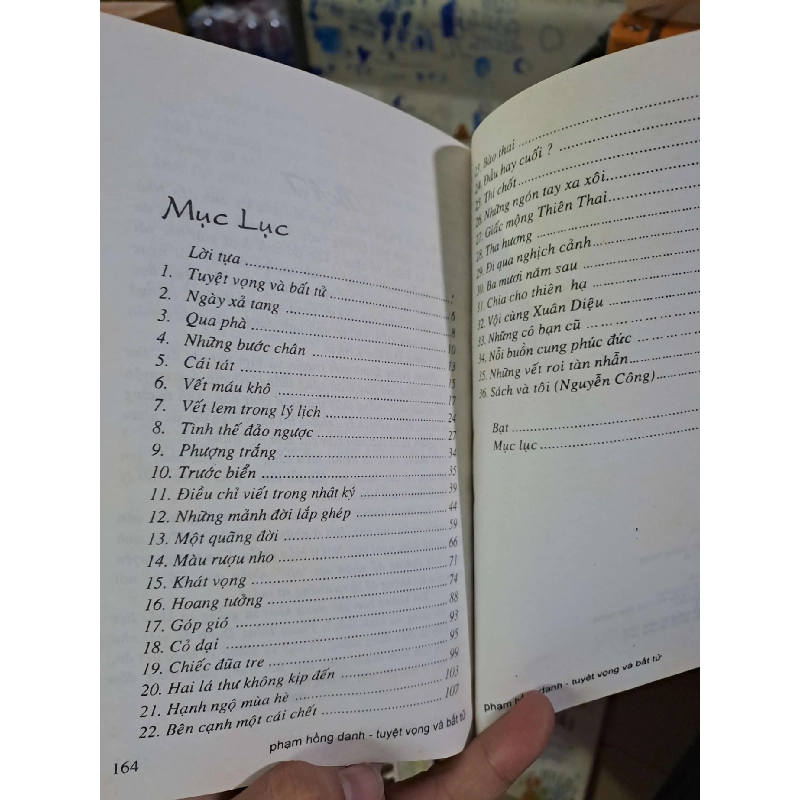 Mục Lục
Lời tựa
1. Tuyệt vọng và bất tử 5
2. Ngày xả tang 6
3. Qua phà 8
4. Những bước chân 10
5. Cái tát 13
6. Vết máu khô 15
7. Vết lem trong lý lịch 17
8. Tình thế đảo ngược 24
9. Phượng trắng 27
10. Trước biển 34
11. Điều chỉ viết trong nhật ký 35
12. Những mảnh đời lắp ghép 39
13. Một quãng đời 44
14. Màu rượu nho 59
15. Khát vọng 66
16. Hoang tưởng 71
17. Góp gió 74
18. Cỏ dại 88
19. Chiếc đũa tre 93
20. Hai lá thư không kịp đến 95
21. Hạnh ngộ mùa hè 99
22. Bên cạnh một cái chết 103
107
phạm hồng danh - tuyệt vọng và bất tử
164
23. Bào thai
24. Đầu hay cuối ?
25. Thí chốt
26. Những ngón tay xa xôi
27. Giấc mộng Thiên Thai
28. Tha hương
29. Đi qua nghịch cảnh
30. Ba mươi năm sau
31. Chia cho thiên hạ
32. Vội cùng Xuân Diệu
33. Những cô bạn cũ
34. Nỗi buồn cung phúc đức
35. Những vết roi tàn nhẫn
36. Sách và tôi (Nguyễn Công)
Bạt
Mục lục
phạm hồng danh - tuyệt vọng và bất tử